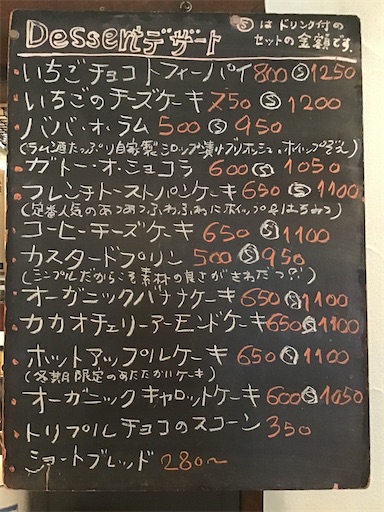 Dessertデザート
Ⓢはドリンク付の
セットの金額です。
いちごチョコトフィーパイ 800 Ⓢ 1250
いちごのチーズケーキ 750 Ⓢ 1200
ババ・オ・ラム 500 Ⓢ 950
(ラム酒たっぷり自家製シロップ漬けブリオッシュ。ホイップぞえ)
ガトー・オ・ショコラ 600 Ⓢ 1050
フレンチトーストパンケーキ 650 Ⓢ 1100
(定番人気のあつあつふわふわにホイップ&はちみつ)
コーヒーチーズケーキ 650 Ⓢ 1100
カスタードプリン 500 Ⓢ 950
(シンプルだからこそ素材の良さがきわだつ?!)
オーガニックバナナケーキ 650 Ⓢ 1100
カカオチェリーアーモンドケーキ 650 Ⓢ 1100
ホットアップルケーキ 650 Ⓢ 1100
(冬期限定のあたたかいケーキ)
オーガニックキャロットケーキ 600 Ⓢ 1050
トリプルチョコのスコーン 350
ショートブレッド 280〜